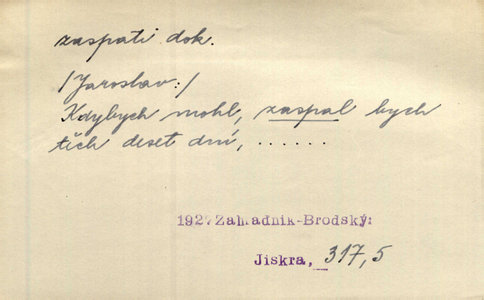 zaspati dok.
/Jaroslav:/
Kdybych mohl, zaspal bych
těch deset dní, ......
1927 Zahradník-Brodský:
Jiskra, 317,5